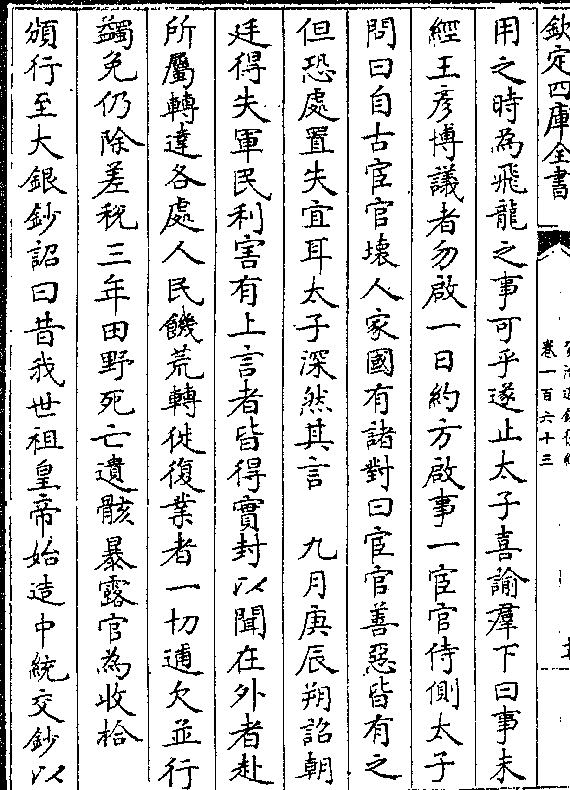 欽定四庫全書
卷一百六十三
用之時為飛龍之事可乎遂止太子喜諭羣下曰事未
經王彥博議者勿啟一日約方啟事一宦官侍側太子
問曰自古宦官壞人家國有諸對曰宦官善惡皆有之
但恐處置失宜耳太子深然其言　九月庚辰朔詔朝
廷得失軍民利害有上言者皆得實封以聞在外者赴
所屬轉達各處人民饑荒轉徙復業者一切逋欠並行
蠲免仍除差稅三年田野死亡遺骸暴露官為收拾
頒行至大銀鈔詔曰昔我世祖皇帝始造中統交鈔以